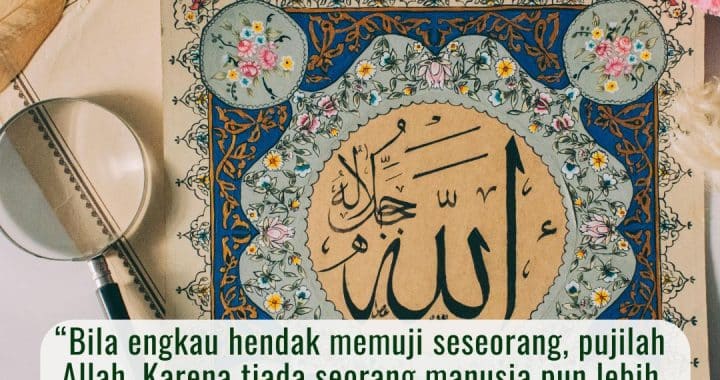 الله جلاله
“Bila engkau hendak memuji seseorang, pujilah
Allah. Karena tiada seorang manusia pun lebih